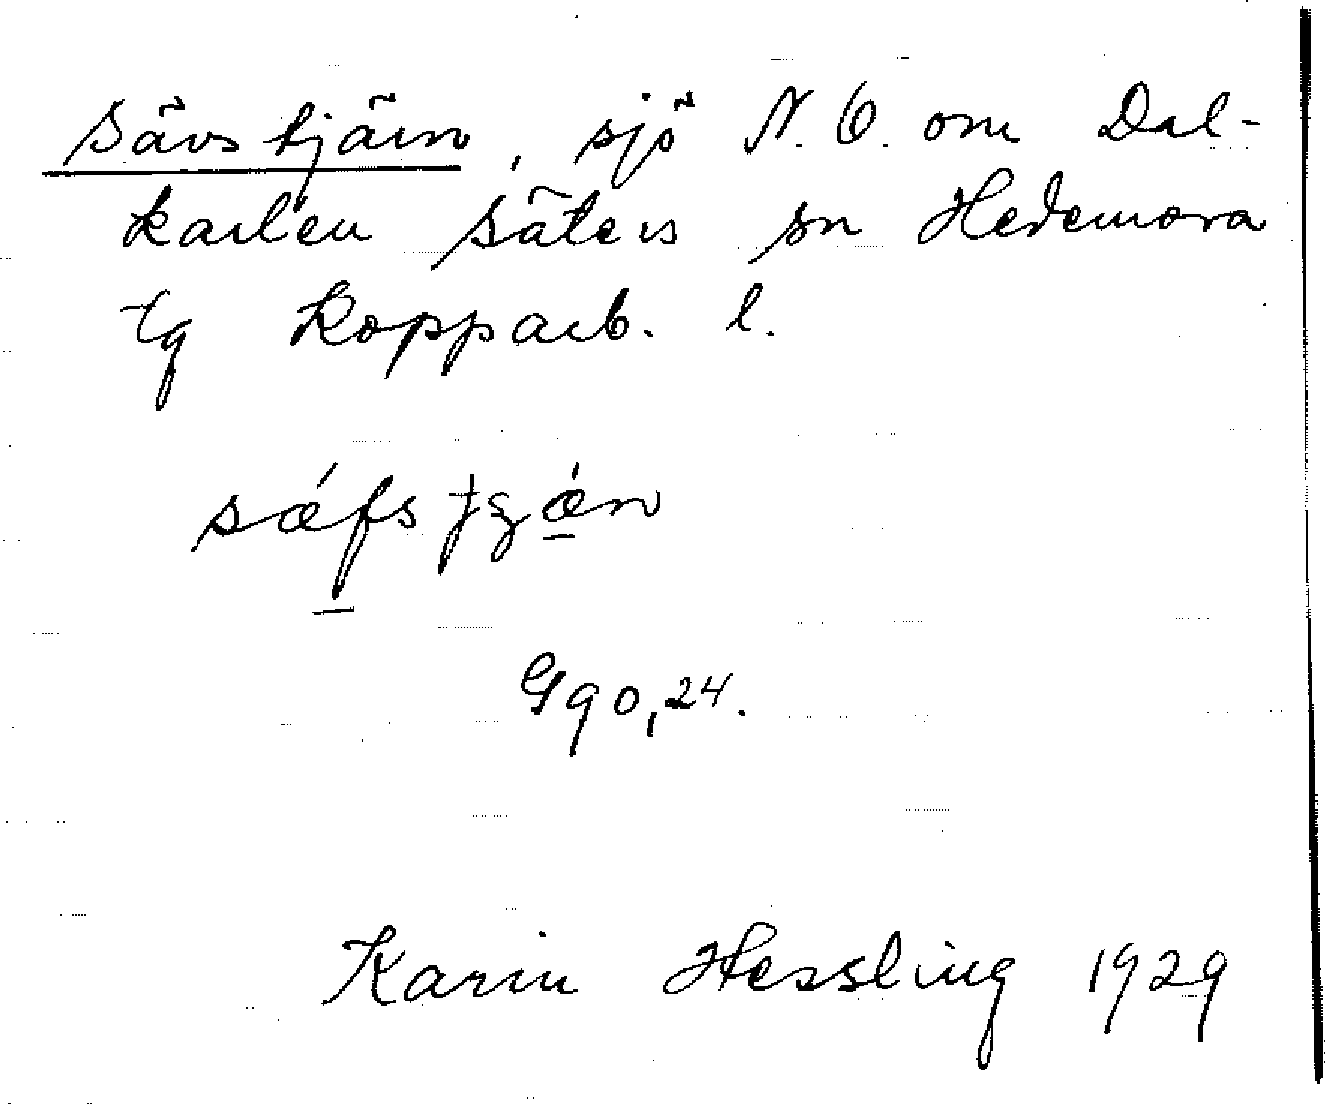 Sävstjärn, sjö N.O. om Dal-
karlen Säters sn Hedemora
tg Kopparb. l.
sǽfstʒǽn
Gg 0,24.
Karin Hessling 1929